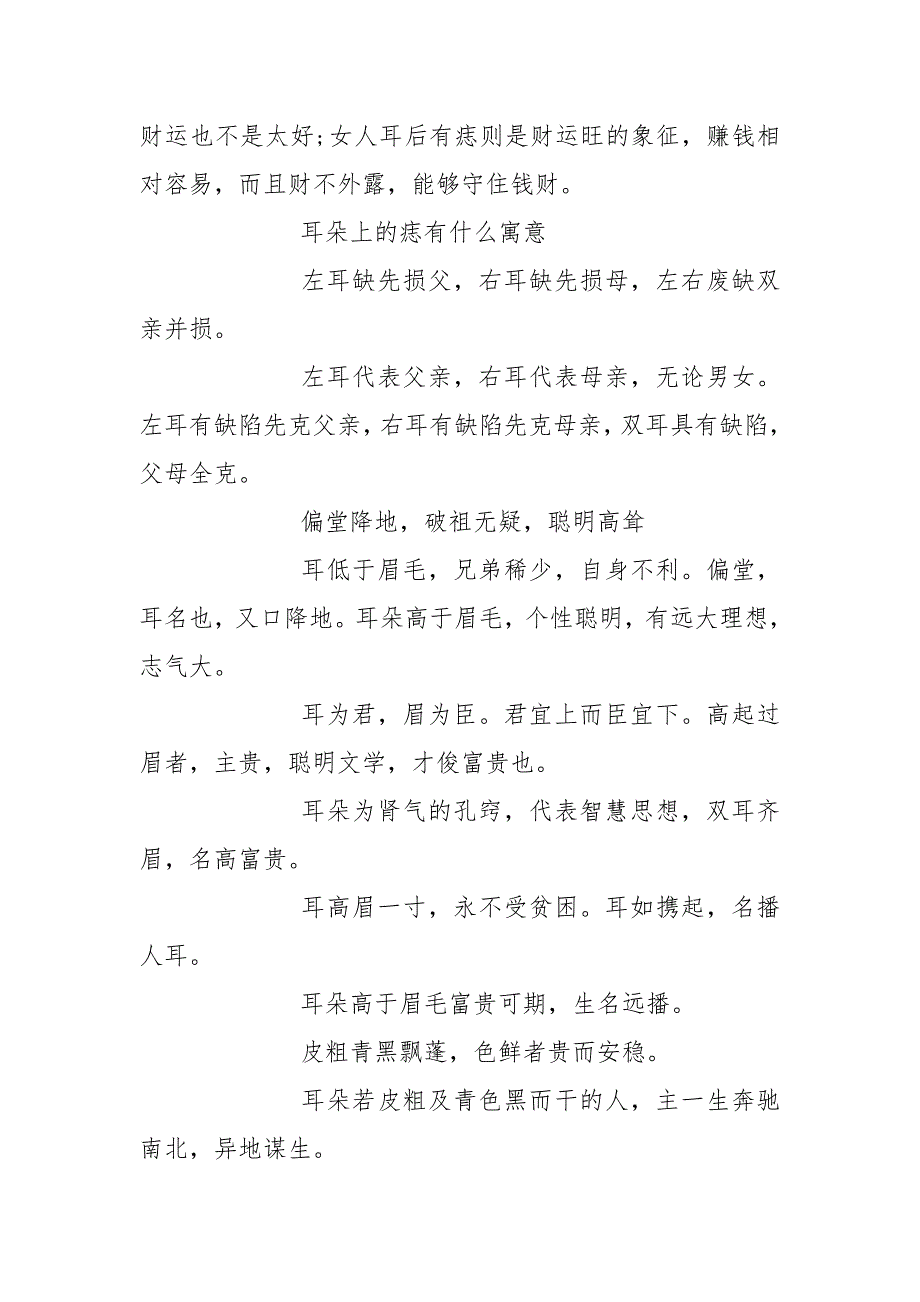 财运也不是太好;女人耳后有痣则是财运旺的象征，赚钱相
对容易，而且财不外露，能够守住钱财。
耳朵上的痣有什么寓意
左耳缺先损父，右耳缺先损母，左右废缺双
亲并损。
左耳代表父亲，右耳代表母亲，无论男女。
左耳有缺陷先克父亲，右耳有缺陷先克母亲，双耳具有缺陷，
父母全克。
偏堂降地，破祖无疑，聪明高耸
耳低于眉毛，兄弟稀少，自身不利。偏堂，
耳名也，又口降地。耳朵高于眉毛，个性聪明，有远大理想，
志气大。
耳为君，眉为臣。君宜上而臣宜下。高起过
眉者，主贵，聪明文学，才俊富贵也。
耳朵为肾气的孔窍，代表智慧思想，双耳齐
眉，名高富贵。
耳高眉一寸，永不受贫困。耳如携起，名播
人耳。
耳朵高于眉毛富贵可期，生名远播。
皮粗青黑飘蓬，色鲜者贵而安稳。
耳朵若皮粗及青色黑而干的人，主一生奔驰
南北，异地谋生。